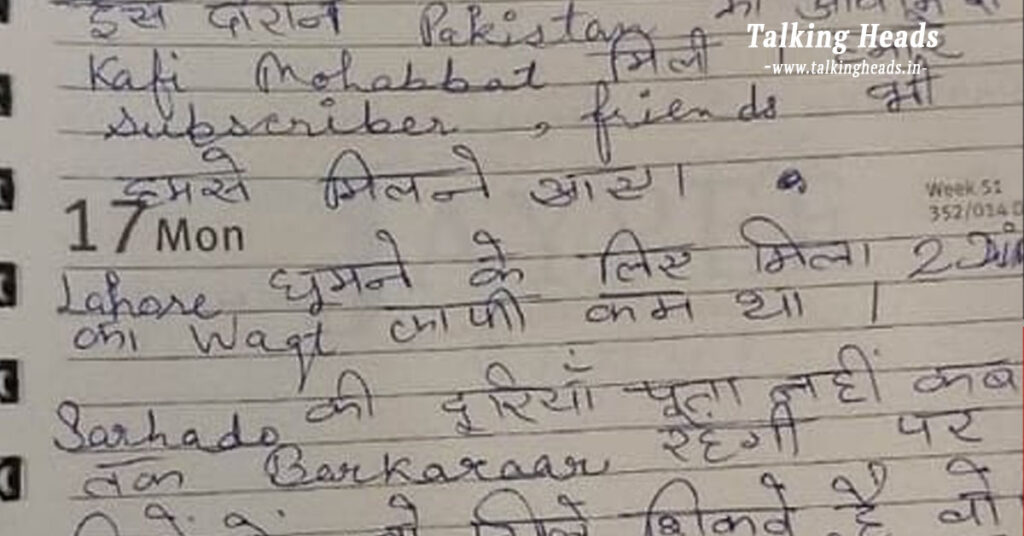 इस दौरान Pakistan की आवाम से
Talking Heads
-www.talkingheads.in-
Kafi Mohabbat मिली
subscriber, friends भी
हमसे मिलने आए।
Week 51
352/014
17 Mon
Lahore घूमने के लिए मिला 2 दिन
का Waqt काफी कम था।
Sarhado की दूरियाँ पता नहीं कब
तक Barkaraar रहेगी पर
शिकवे हैं वो